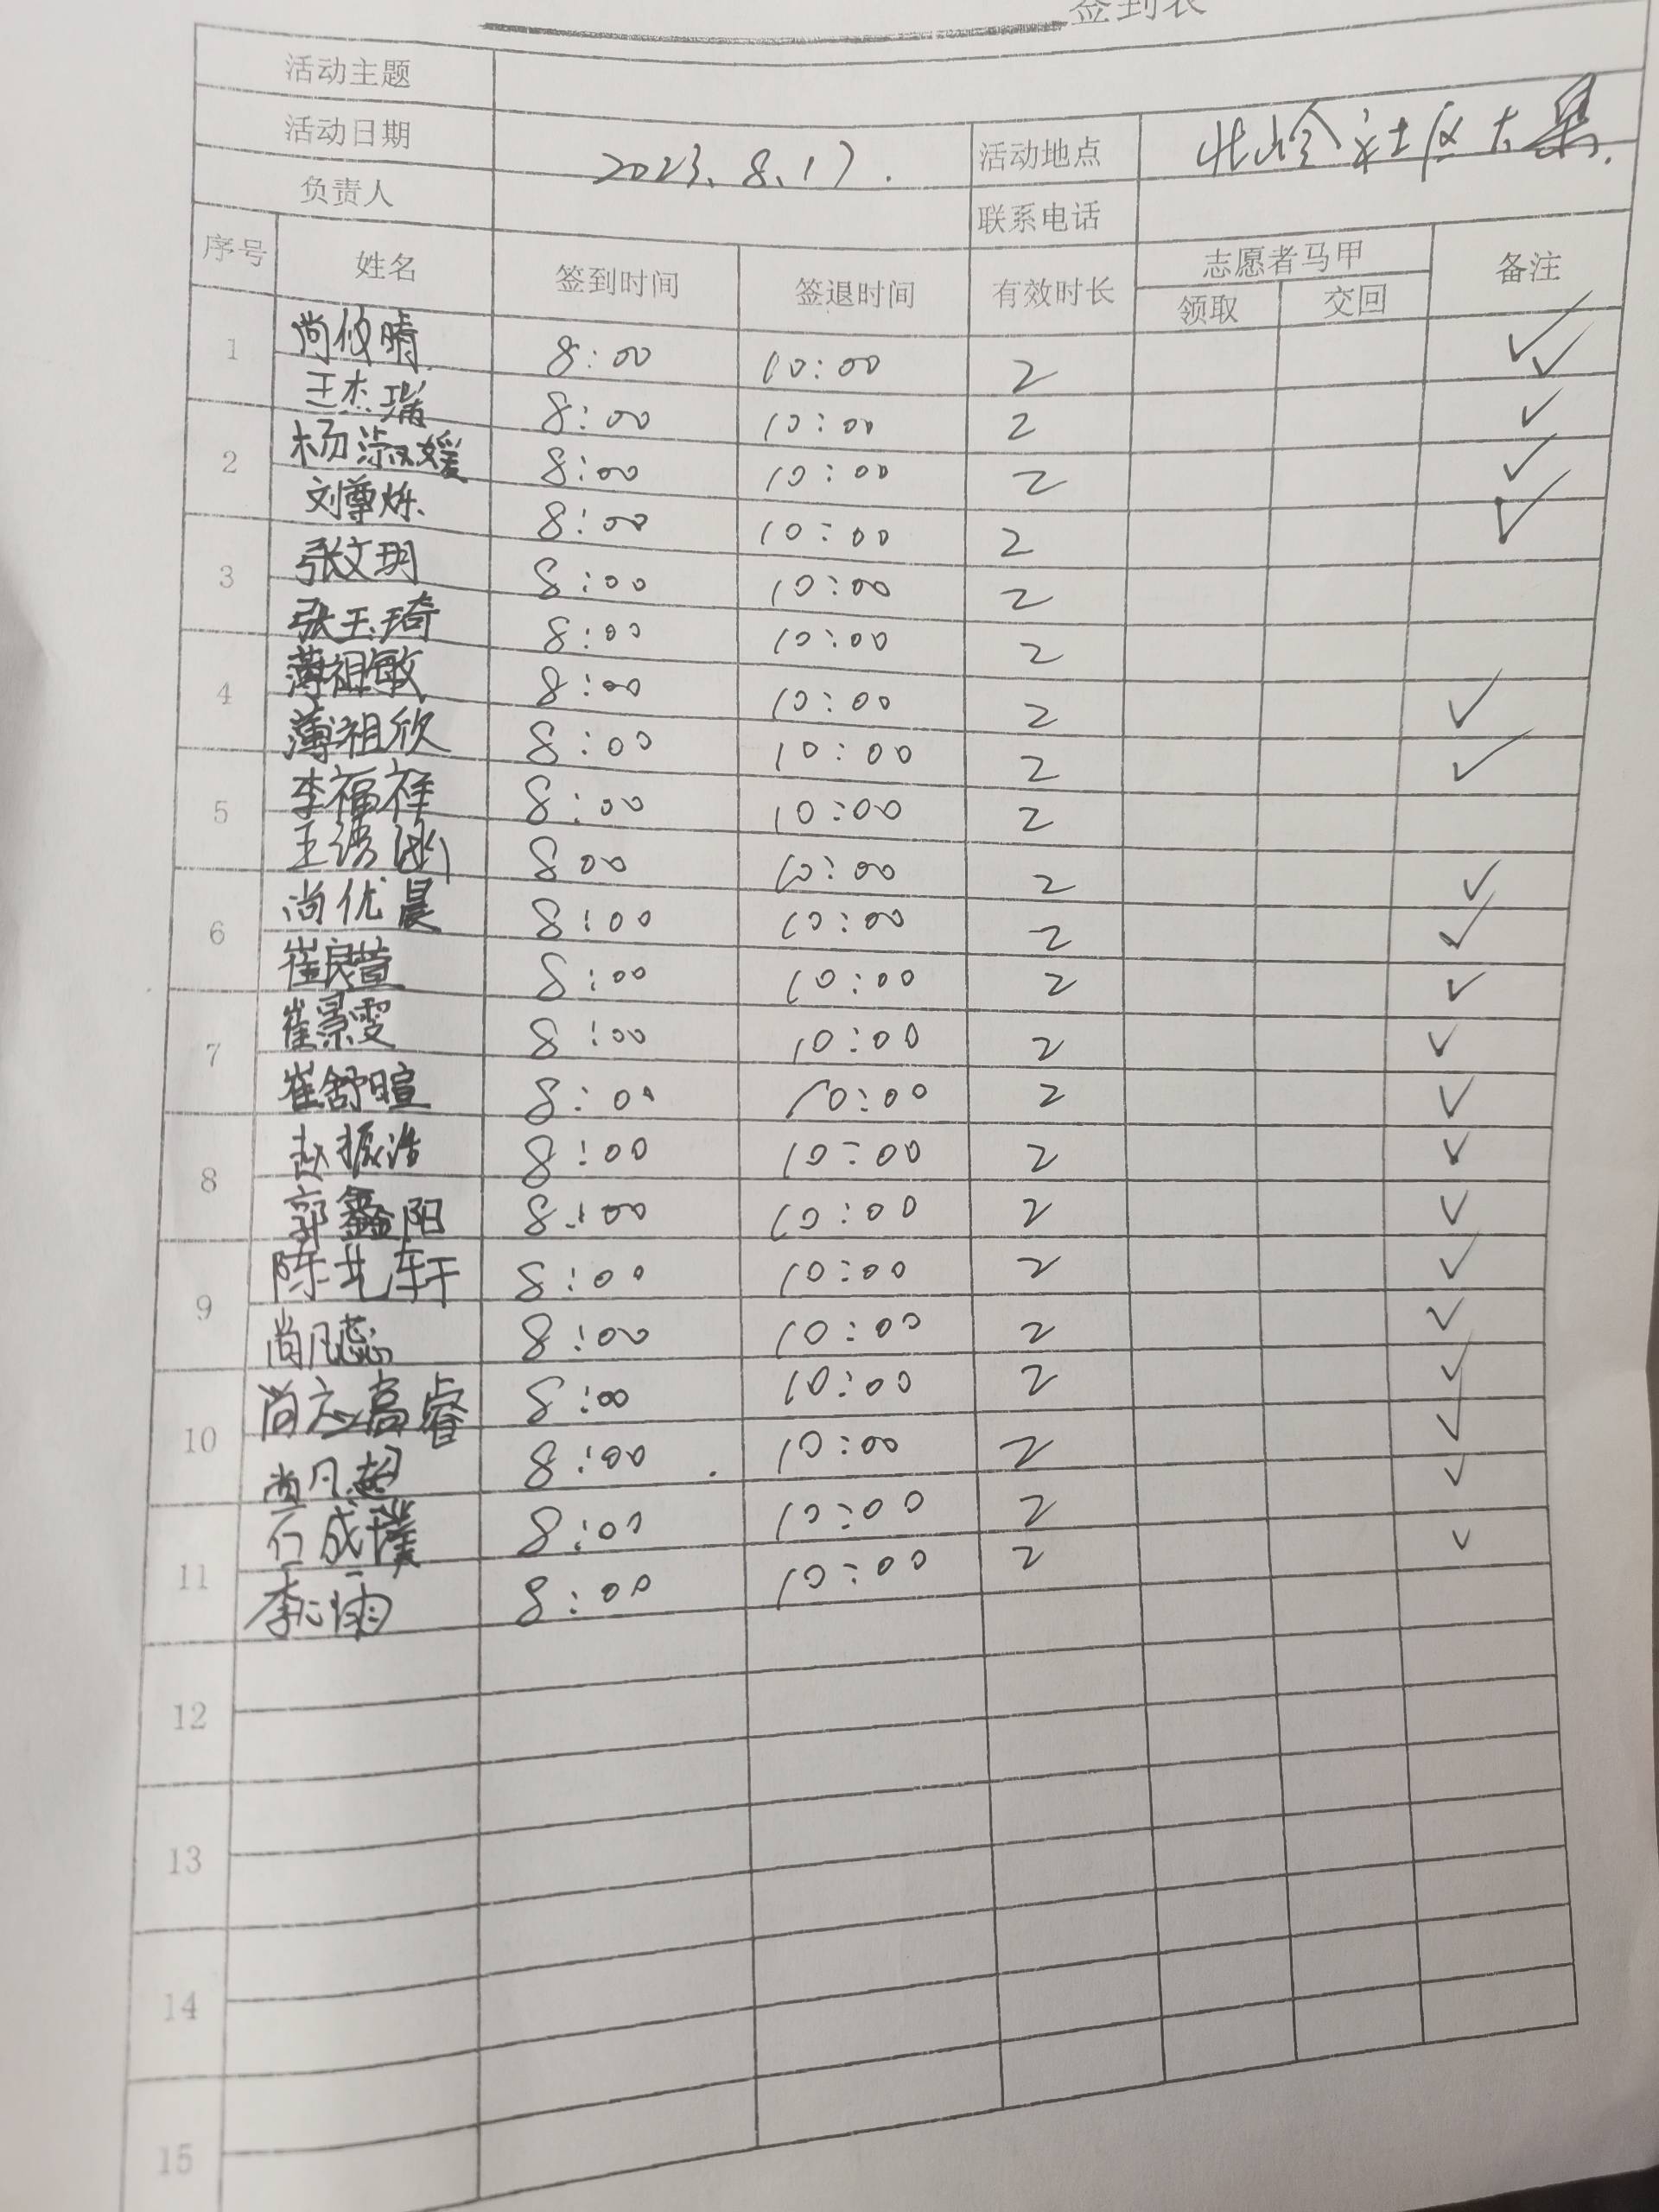 签到表
活动主题
活动日期 2023.8.17. 活动地点 北岭社区大集.
负责人 联系电话
序号 姓名 签到时间 签退时间 有效时长 志愿者马甲 备注
领取 交回
1 尚攸晴 8:00 10:00 2 ✓
王杰瑞 8:00 10:00 2 ✓
2 杨淑媛 8:00 10:00 2 ✓
刘尊烁 8:00 10:00 2 ✓
3 张文玥 8:00 10:00 2 ✓
张玉琦 8:00 10:00 2
4 薄祖敏 8:00 10:00 2
薄祖欣 8:00 10:00 2 ✓
5 李福祥 8:00 10:00 2 ✓
王 8:00 10:00 2
6 尚优晨 8:00 10:00 2 ✓
崔良萱 8:00 10:00 2 ✓
7 崔景雯 8:00 10:00 2 ✓
崔舒暄 8:00 10:00 2 ✓
8 赵振浩 8:00 10:00 2 ✓
郭鑫阳 8:00 10:00 2 ✓
9 陈北轩 8:00 10:00 2 ✓
尚凡蕊 8:00 10:00 2 ✓
10 尚高睿 8:00 10:00 2 ✓
尚凡超 8:00 10:00 2 ✓
11 石成璞 8:00 10:00 2 ✓
李心 8:00 10:00 2 ✓
12
13
14
15